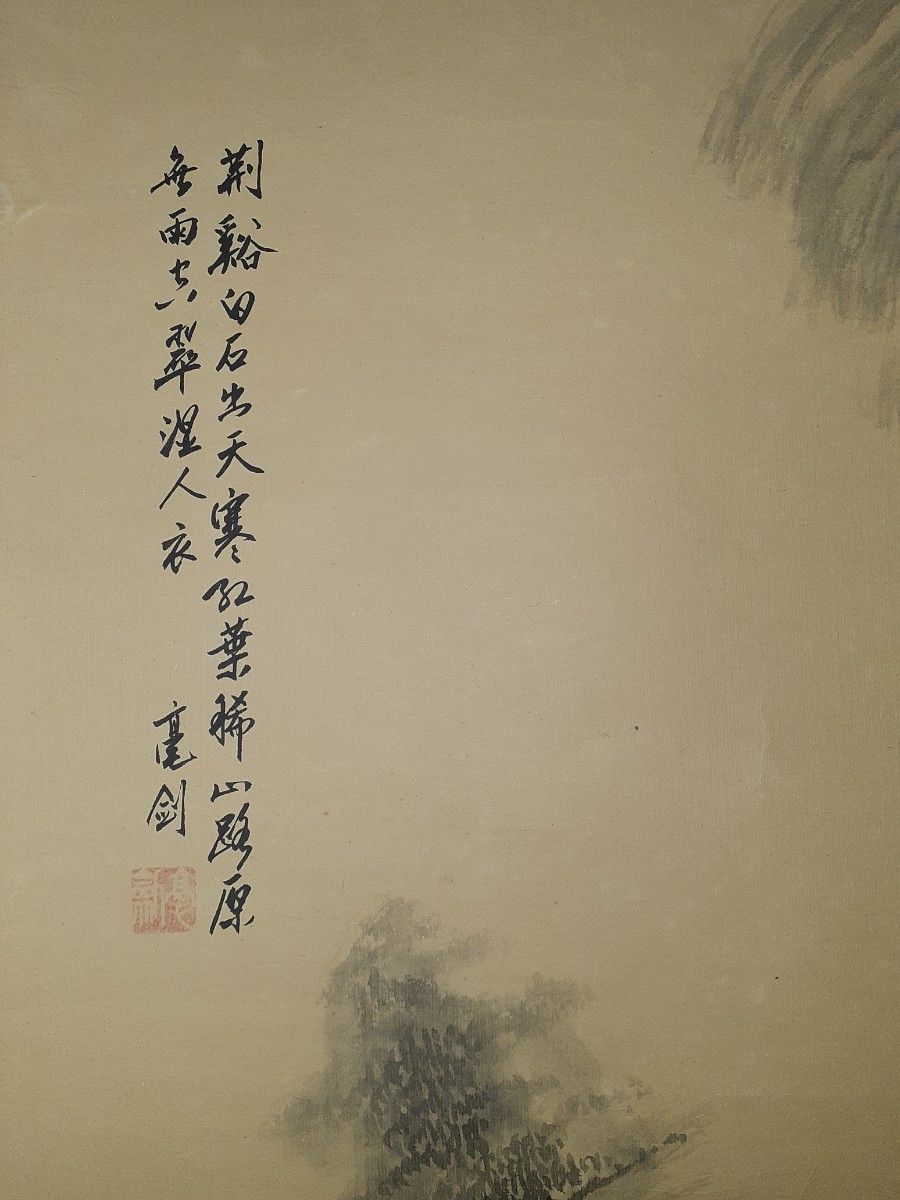 荆谿白石出天寒红葉稀山路原
無雨空翠湿人衣
亮剑